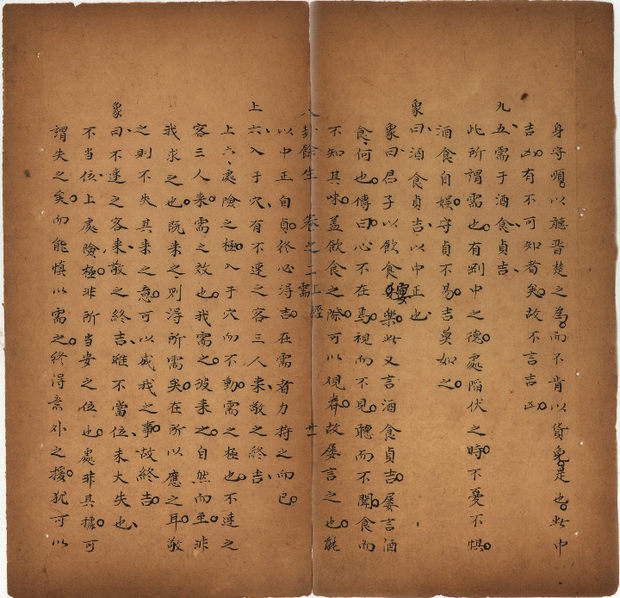 身守順以聽晋楚之為而不肯以貨免是也此中
吉凶有不可知者矣故不言吉凶
九五需于酒食貞吉
此所謂需也有剛中之德處陷伏之時不憂不惧
酒食自娱守貞不易吉莫如之
象曰酒食貞吉以中正也
象曰君子以飲食宴樂此又言酒食貞吉屡言酒
食何也傳曰心不在焉視而不見聽而不聞食而
不知其味盖飲食之際可以觀養故屡言之也能
八卦餘生 卷之二 需 上經 廿一
以中正自貞終必得吉在需者力持之而已
上六入于穴有不速之客三人来敬之終吉
上六處險之極入于穴而不動需之極也不速之
客三人来需之效也我需之彼来之自然而至非
我求之也既来之則得所需矣在所以應之耳敬
之則不失其来之意可以成我之事故終吉
象曰不速之客来敬之終吉雖不當位未大失也
不當位上處險極非所當安之位也處非其據可
謂失之矣而能慎以需之終得意外之援犹可以